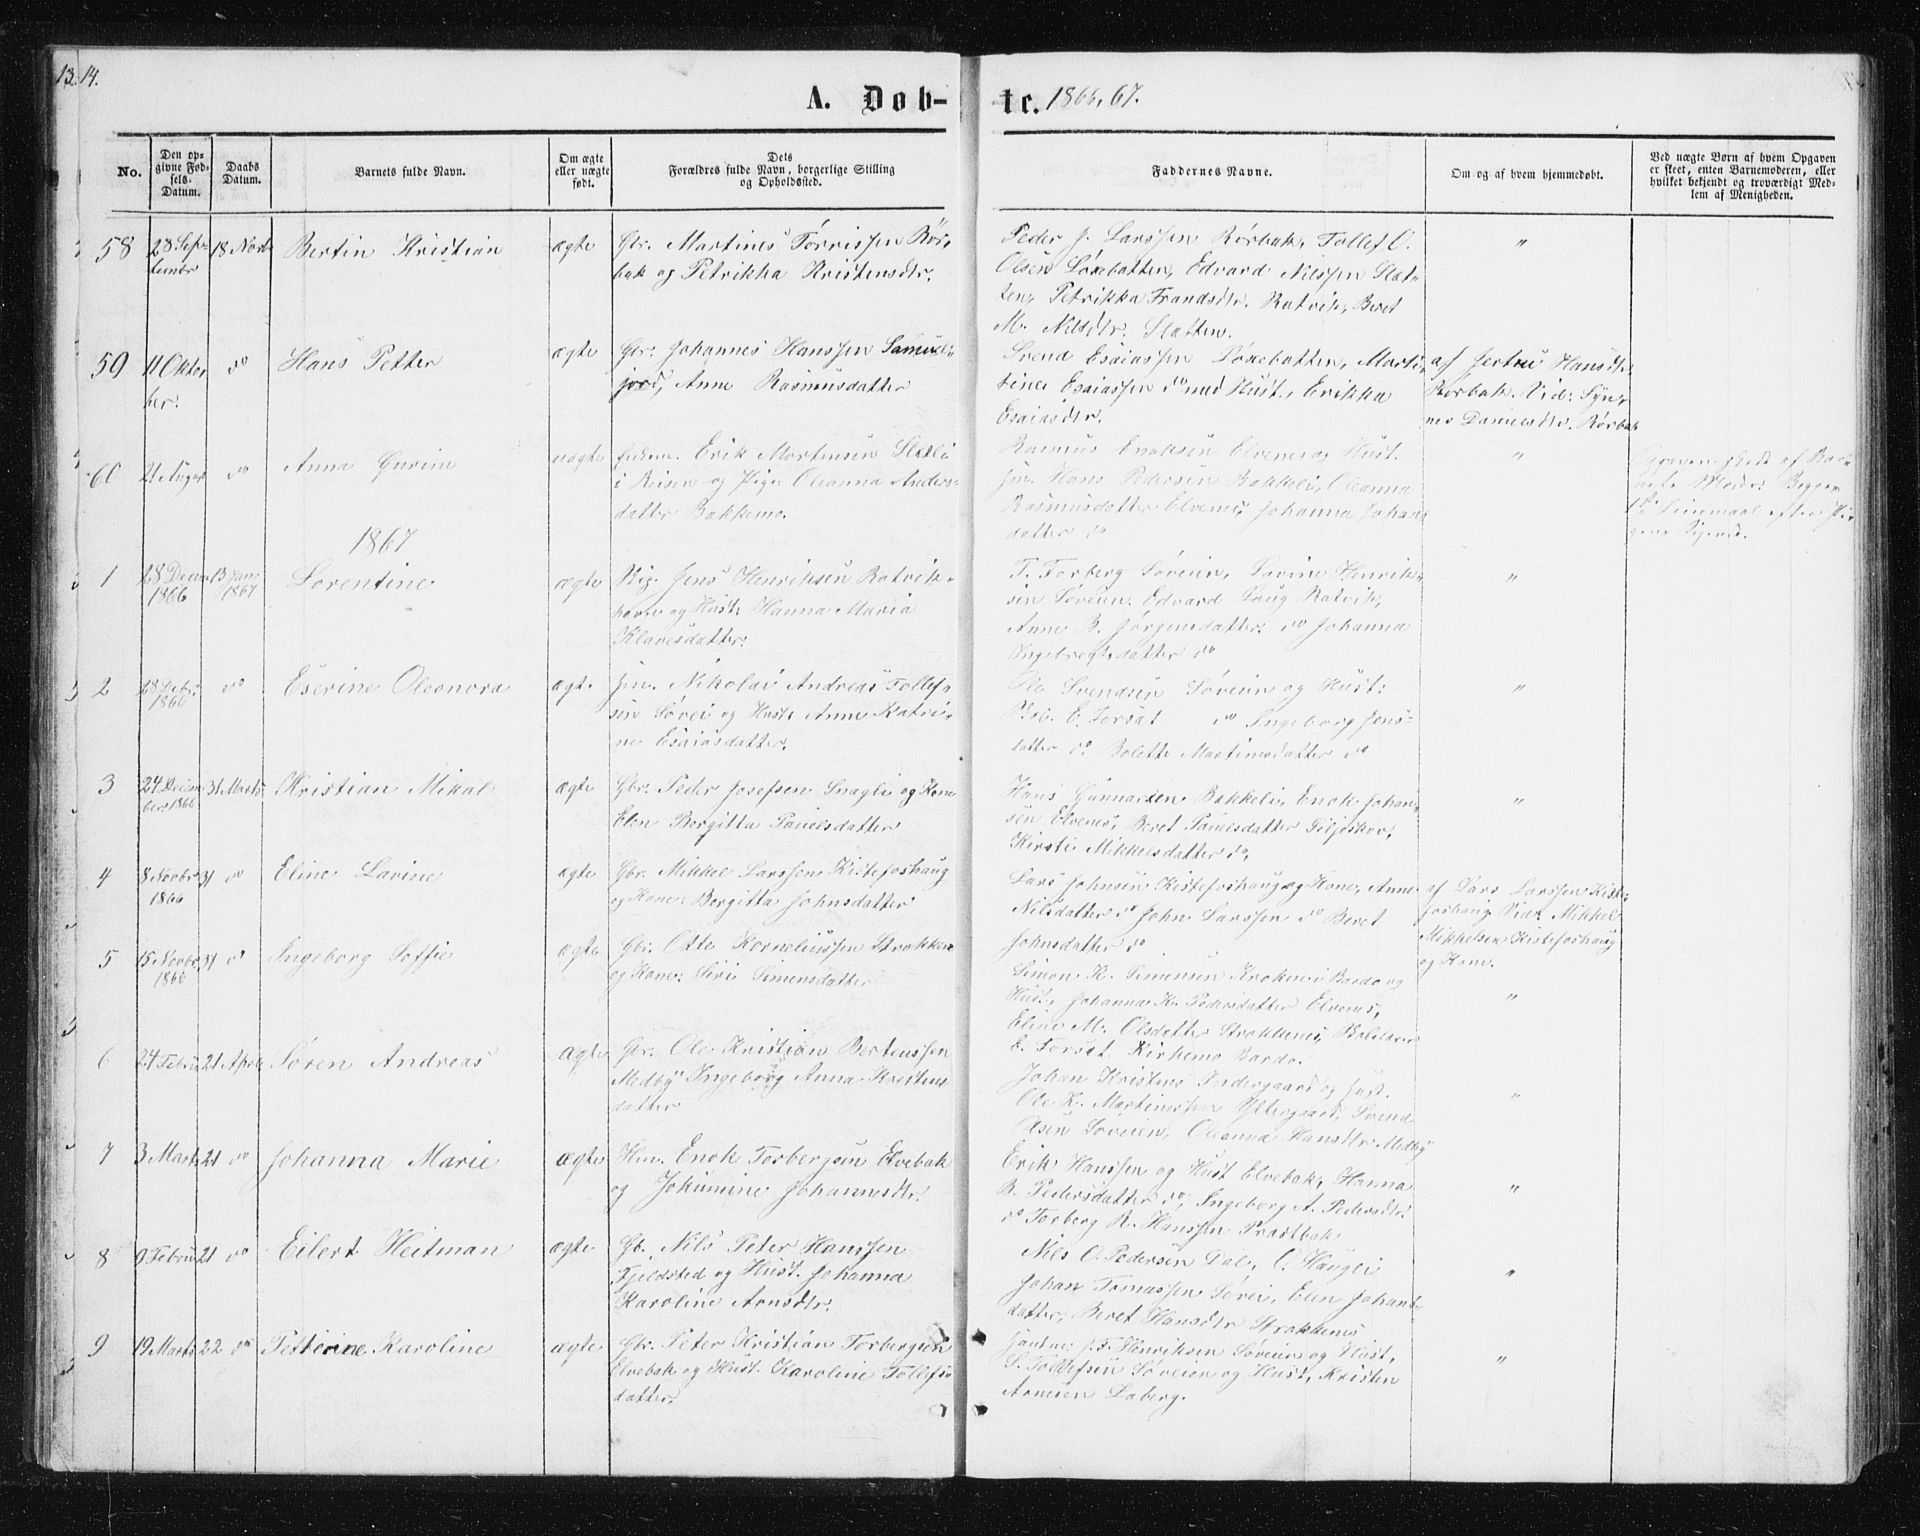 13. 14.
A. Døb-
te. 1866, 67.
No.
Den op-
givne Fød-
sels-
Datum.
Daabs
Datum.
Barnets fulde Navn.
Om ægte
eller uægte
født.
Dets
Forældres fulde Navn, borgerlige Stilling
og Opholdssted.
Faddernes Navne.
Om og af hvem hjemmedøbt.
Ved uægte Børn af hvem Opgaven
er skeet, enten Barnemoderen, eller
hvilket bekjendt og troværdigt Med-
lem af Menigheden.
58
28 Sep-
tembr
18 Novb
Bertin Kristian
ægte
Gbr. Martines Tørrissen Rør,
bak og Petrikka Kristensdtr.
Peder J. Larssen Rørbak, Tollef O.
Olsen Løxebotten, Edvard Nilssen Slat-
ten, Petrikka Frandsdtr. Ratvik, Beret
M. Nilsdtr. Slatten.
"
59
11 Okto
ber.
do
Hans Petter
ægte
Gbr. Johannes Hanssen Samuel-
jord, Anne Rasmusdatter
Svend Esaiassen Løxebotten, Marti-
tines Esaiassen do med Hust., Erikka
Esaiasdtr.
af Jertru Hansdtr
Rørbak. Vid: Syn-
nev Danielsdtr. Rørbak
60
21 August
do
Anna Gurine
uægte
Erik Mortensen
i Reisen og Pige Oleanna Anders-
datter Bakkemo.
Rasmus Enoksen Elvenes og Hust.
Hans Pedersen Bakkeli, Oleanna
Rasmusdatter Elvenes, Johanna Johans
datter do
"
Opgaven skede af Bar-
nets Moder. Begges
1ste Leiermaal efter Pi-
gens Sigende.
1867
1
28 Decem
1866
13 Jan
1867
Lorentine
ægte
Jens Henriksen Ratvik-
havn og Hust: Hanna Maria
Klavesdatter.
T. Torberg Søveien, Lavine Henrik-
sen Søveien. Edvard Ratvik,
Anne B. Jørgensdatter: do Johanna
Ingebregtsdatter do
"
2
28 Debr.
1866
do
Eserine Oleonora
ægte
Nikolai Andreas Tollef-
sen Sørei og Hust: Anne Katri-
ne Esaiasdatter.
Ole Svendsen Søveien og Hust:
E. Forset do Ingeborg Jens-
datter do. Bolette Martinusdatter do
"
3
24 Decem
ber 1866
31 Marts
Kristian Mikal
ægte
Gbr. Peder Josefsen Snagli og Kone
Elen Borgitta Paulsdatter
Hans Gunnarsen Bakkeli, Enok Johan-
sen Elvenes, Beret Paulsdatter
Kirsti Mikkelsdatter do.
"
4
8 Novbr
1866
31 do
Eline Lavine
ægte
Gbr. Mikkel Larssen Kistefoshaug
og Kone: Borgitta Johnsdatter
Lars Johnsen Kistefoshaug og Kone, Anne
Nilsdatter do John Larssen do Beret
Johnsdatter do
af Lars Larssen Kiste-
foshaug. Vid: Mikkel
Mikkelsen Kistefoshaug
og Kone.
5
15 Novbr
1866
31 do
Ingeborg Soffie
ægte
Gbr. Otto Korneliussen Strokkenes
og Kone: Siri Simensdatter
Simon K. Simensen Krokmo i Bardo og
Hust, Johanna K. Pedersdatter Elvenes,
Eline M. Olsdatter Strokkenes,
E. Forset. Kirkemo Bardo.
"
6
24 Febru
21 April
Søren Andreas
ægte
Gbr. Ole Kristian Bertenssen
Medby Ingeborg Anna Kristens
datter
Johan Kristens Indergaard og Hust.
Ole K. Martinessen Yttergaard, Svend
Olsen Søveien, Oleanna Hansdtr Medby
"
7
3 Marts
21 do
Johanna Marie
ægte
Hm. Enok Torbergsen Elvebak
og Jokumine Johannesdtr.
Erik Hanssen og Hust Elvebak, Hanna
B. Pedersdatter do, Ingeborg A. Pedersdtr.
do Torberg R. Hanssen Prestbak.
"
8
9 Febru
21 do
Eilert Heitman
ægte
Gb. Nils Peter Hanssen
Fjeldsted og Hust. Johanna
Karoline Arnsdtr.
Nils O. Pedersen Dal, O. Haugli
Johan Tomassen Sørei, Elen Johans-
datter, Beret Hansdtr Strokkenes
"
9
19 Marts
22 do
Petterine Karoline
ægte
Gbr. Peter Kristian Torbergsen
Elvebak og Hust. Karoline Tollefs-
datter.
J. F. Henriksen Søveien og Hust,
S. Tollefsen Søveien og Hust, Kristen
Arnesen Loberg.
"